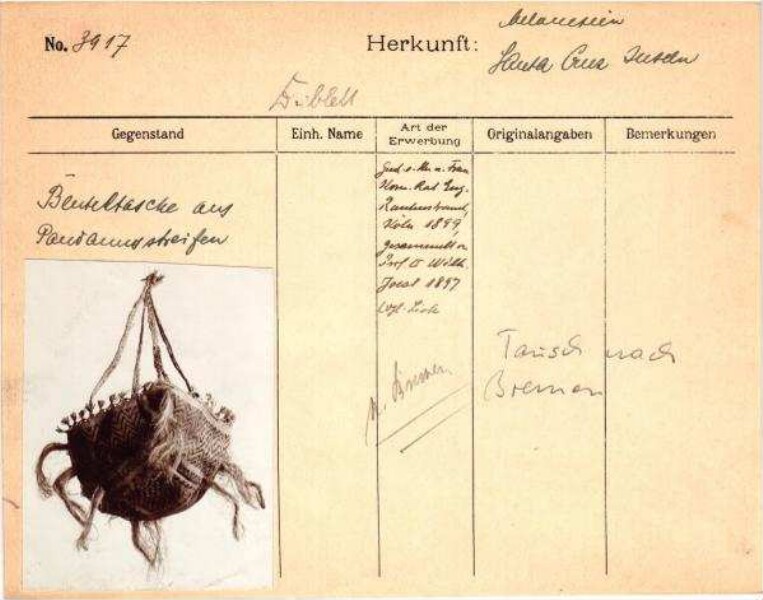 No. 3917
Herkunft: Melanesien
Santa Cruz Inseln
Dublett
Gegenstand Einh. Name Art der Erwerbung Originalangaben Bemerkungen
Beuteltasche aus
Pandanusstreifen
Gesch. v. Hrn. u. Frau
Kom. Rat Eug.
Rautenstrauch,
Köln 1899,
gesammelt v.
Prof. D Wilh.
Joest 1897
n. Bremen
Tausch nach
Bremen